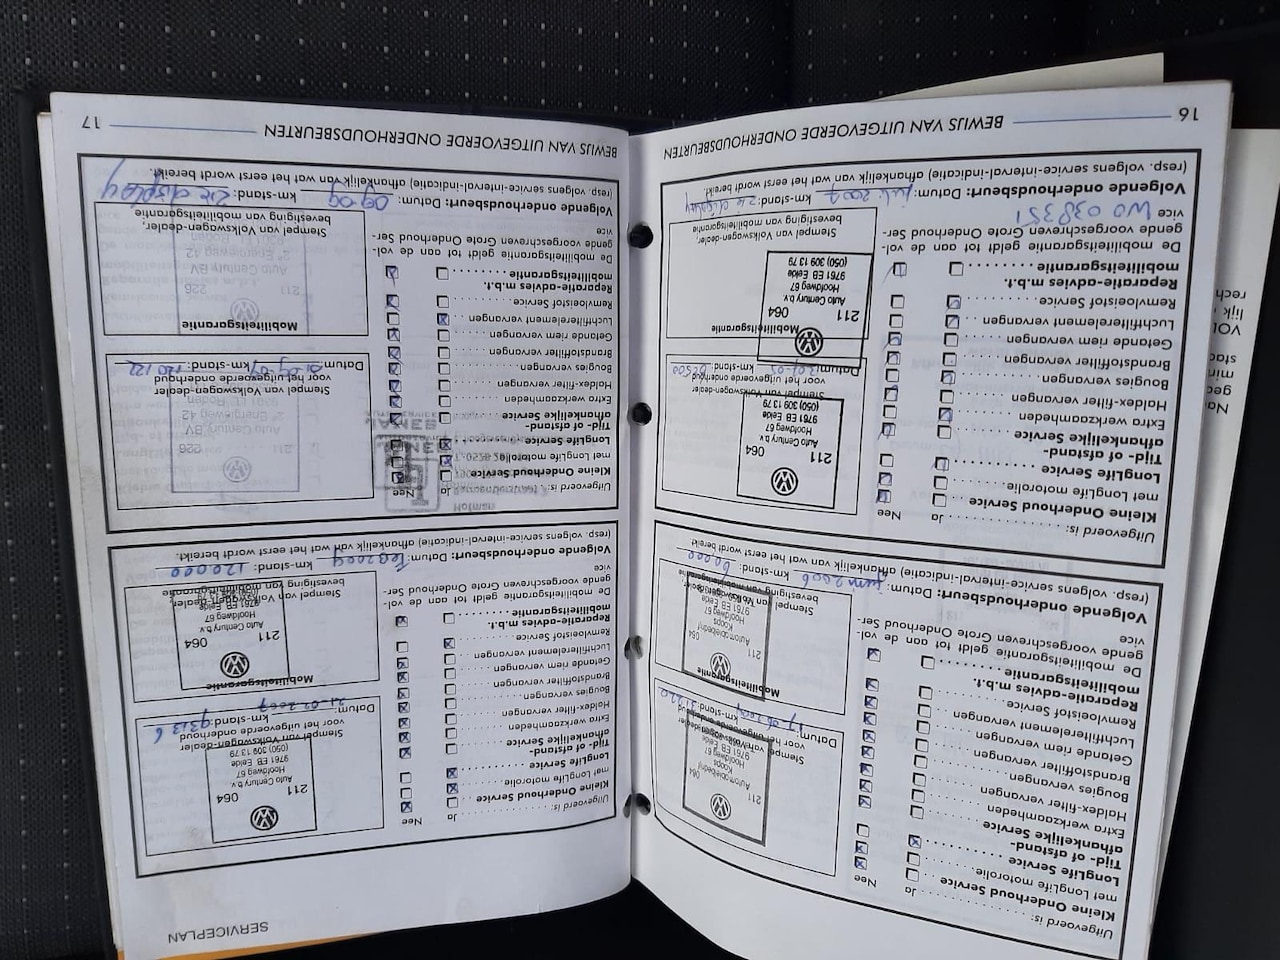 SERVICEPLAN
Uitgevoerd is: Ja Nee
Kleine Onderhoud Service
met LongLife motorolie
LongLife Service
Tijd- of afstand-
afhankelijke Service
Extra werkzaamheden
Haldex-filter vervangen
Bougies vervangen
Brandstoffilter vervangen
Getande riem vervangen
Luchtfilterelement vervangen
Remvloeistof Service
Reparatie-advies m.b.t.
mobiliteitsgarantie
De mobiliteitsgarantie geldt tot aan de vol-
gende voorgeschreven Grote Onderhoud Ser-
vice
Stempel van Volkswagen-dealer
voor het uitgevoerde onderhoud
211 064
Automobielbedrijf
Koops
Hoofdweg 67
9761 EB Eelde
Datum: km-stand: 31220
Mobiliteitsgarantie
211
Automobielbedrijf
Koops
Hoofdweg 67
9761 EB Eelde
Stempel van Volkswagen-dealer,
bevestiging van mobiliteitsgarantie
Volgende onderhoudsbeurt: Datum: juni 2006 km-stand: 60.000
(resp. volgens service-interval-indicatie) afhankelijk van wat het eerst wordt bereikt.
Uitgevoerd is: Ja Nee
Kleine Onderhoud Service
met LongLife motorolie
LongLife Service
Tijd- of afstand-
afhankelijke Service
Extra werkzaamheden
Haldex-filter vervangen
Bougies vervangen
Brandstoffilter vervangen
Getande riem vervangen
Luchtfilterelement vervangen
Remvloeistof Service
Reparatie-advies m.b.t.
mobiliteitsgarantie
De mobiliteitsgarantie geldt tot aan de vol-
gende voorgeschreven Grote Onderhoud Ser-
vice
WO 038351
211 064
Auto Century b.v.
Hoofdweg 67
9761 EB Eelde
(050) 309 13 79
Stempel van Volkswagen-dealer
voor het uitgevoerde onderhoud
Datum: km-stand:
Mobiliteitsgarantie
211 064
Auto Century b.v.
Hoofdweg 67
9761 EB Eelde
(050) 309 13 79
Stempel van Volkswagen-dealer,
bevestiging van mobiliteitsgarantie
Volgende onderhoudsbeurt: Datum: juli 2007 km-stand: zie display
(resp. volgens service-interval-indicatie) afhankelijk van wat het eerst wordt bereikt.
BEWIJS VAN UITGEVOERDE ONDERHOUDSBEURTEN 16
Uitgevoerd is: Ja Nee
Kleine Onderhoud Service
met LongLife motorolie
LongLife Service
Tijd- of afstand-
afhankelijke Service
Extra werkzaamheden
Haldex-filter vervangen
Bougies vervangen
Brandstoffilter vervangen
Getande riem vervangen
Luchtfilterelement vervangen
Remvloeistof Service
Reparatie-advies m.b.t.
mobiliteitsgarantie
De mobiliteitsgarantie geldt tot aan de vol-
gende voorgeschreven Grote Onderhoud Ser-
vice
211 064
Auto Century b.v.
Hoofdweg 67
9761 EB Eelde
(050) 309 13 79
Stempel van Volkswagen-dealer
voor het uitgevoerde onderhoud
Datum: 21-02-2007 km-stand: 93136
Mobiliteitsgarantie
211 064
Auto Century b.v.
Hoofdweg 67
9761 EB Eelde
Stempel van Volkswagen-dealer,
bevestiging van mobiliteitsgarantie
Volgende onderhoudsbeurt: Datum: feb 2009 km-stand: 120.000
(resp. volgens service-interval-indicatie) afhankelijk van wat het eerst wordt bereikt.
Uitgevoerd is: Ja Nee
Kleine Onderhoud Service
met LongLife motorolie
LongLife Service
Tijd- of afstand-
afhankelijke Service
Extra werkzaamheden
Haldex-filter vervangen
Bougies vervangen
Brandstoffilter vervangen
Getande riem vervangen
Luchtfilterelement vervangen
Remvloeistof Service
Reparatie-advies m.b.t.
mobiliteitsgarantie
De mobiliteitsgarantie geldt tot aan de vol-
gende voorgeschreven Grote Onderhoud Ser-
vice
211 226
Auto Century BV
2e Energieweg 42
9301 LL Roden
Stempel van Volkswagen-dealer
voor het uitgevoerde onderhoud
Datum: km-stand: 120122
Mobiliteitsgarantie
211 226
Auto Century BV
2e Energieweg 42
9301 LL Roden
Stempel van Volkswagen-dealer,
bevestiging van mobiliteitsgarantie
Volgende onderhoudsbeurt: Datum: 09 09 km-stand: zie display
(resp. volgens service-interval-indicatie) afhankelijk van wat het eerst wordt bereikt.
BEWIJS VAN UITGEVOERDE ONDERHOUDSBEURTEN 17